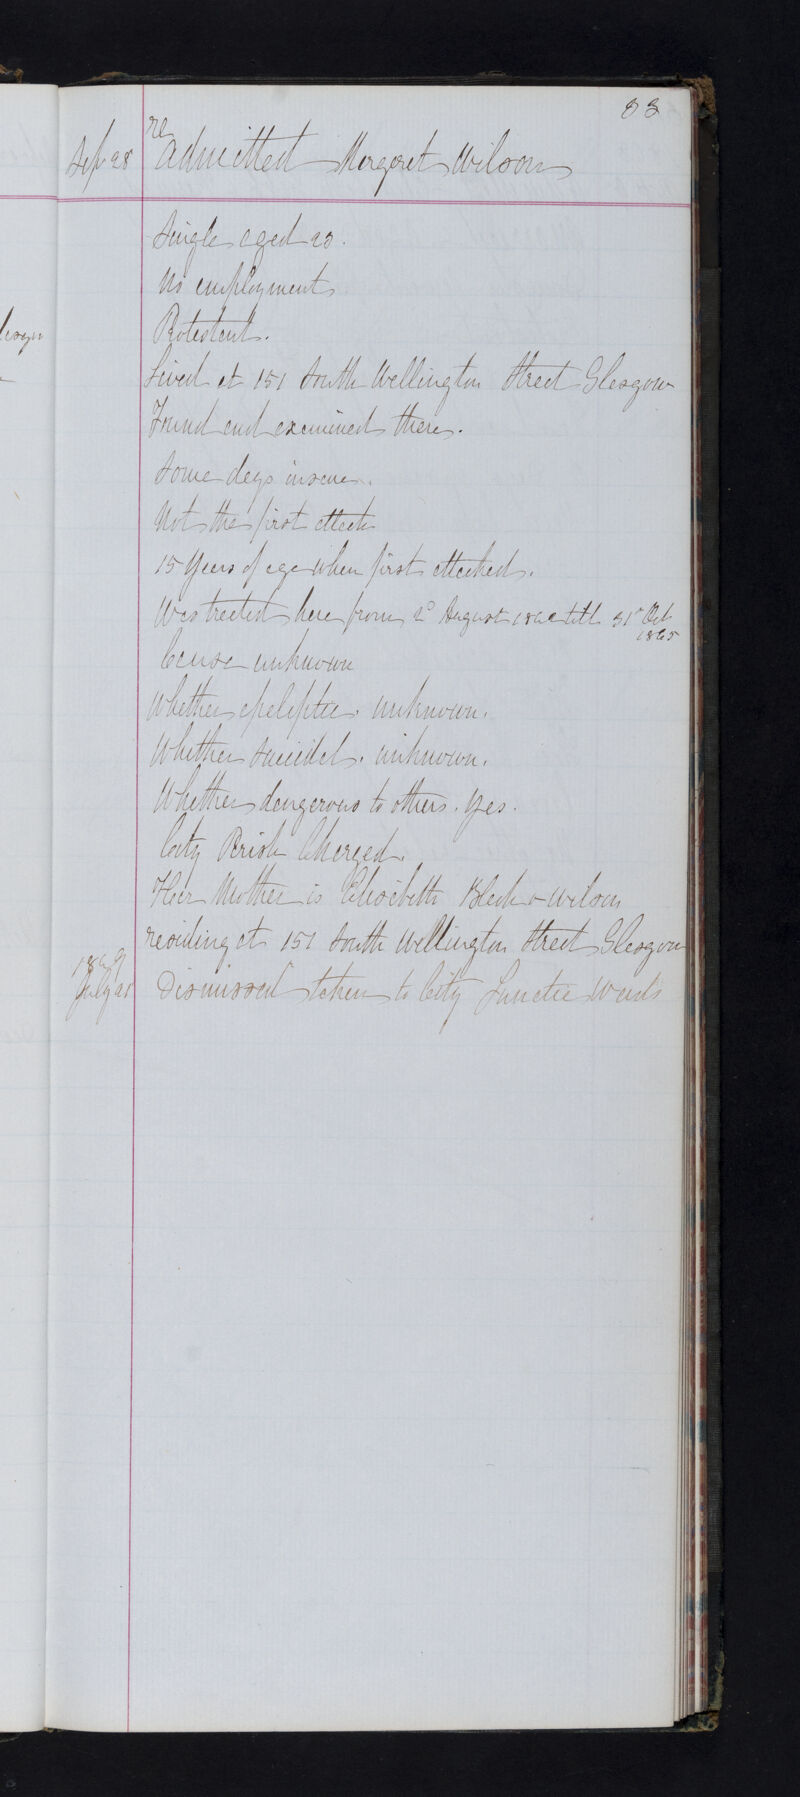 83
Sep 28 re Admitted Margaret Wilson
Single aged 23.
No employment
Protestant.
Lived at 151 South Wellington Street Glasgow
Found and examined there.
Some days insane.
Not the first attack
15 Years of age when first attacked.
Was treated here from 2d August till 31st Oct
1865
Cause unknown
Whether epileptic. unknown.
Whether suicidal. unknown.
Whether dangerous to others. Yes.
City Parish Charged.
Her Mother is Elisabeth Black or Wilson
residing at 151 South Wellington Street Glasgow
1869
July 21 Dismissed taken to City Lunatic Wards